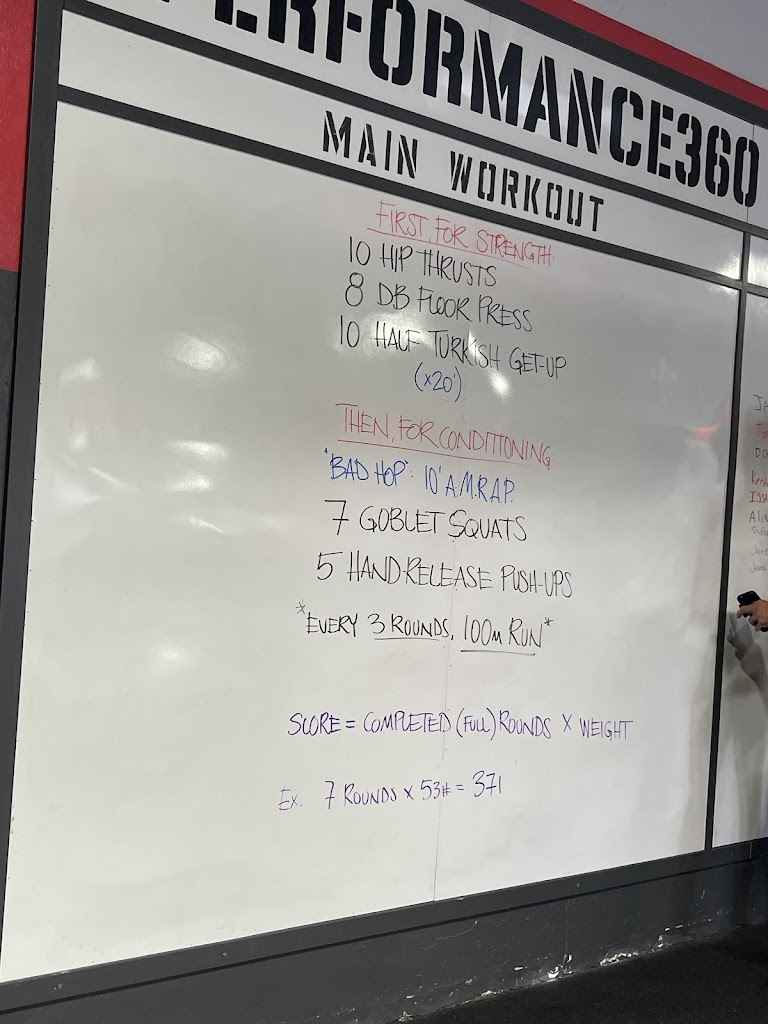 PERFORMANCE360
MAIN WORKOUT
FIRST, FOR STRENGTH:
10 HIP THRUSTS
8 DB FLOOR PRESS
10 HALF TURKISH GET-UP
(x20')
THEN, FOR CONDITIONING:
"BAD HOP": 10' A.M.R.A.P.
7 GOBLET SQUATS
5 HAND-RELEASE PUSH-UPS
*EVERY 3 ROUNDS, 100m RUN*
SCORE = COMPLETED (FULL) ROUNDS X WEIGHT
EX. 7 ROUNDS x 53# = 371